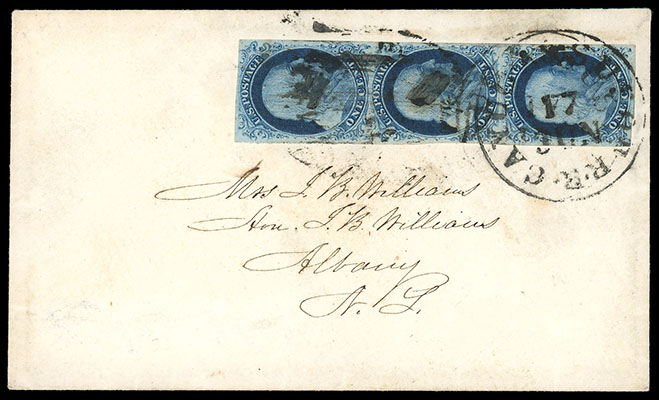 U.S. POSTAGE ONE CENT
U.S. POSTAGE ONE CENT
U.S. POSTAGE ONE CENT
17
R.R.
Mrs J. B. Williams
Hon. J. B. Williams
Albany
N. Y.